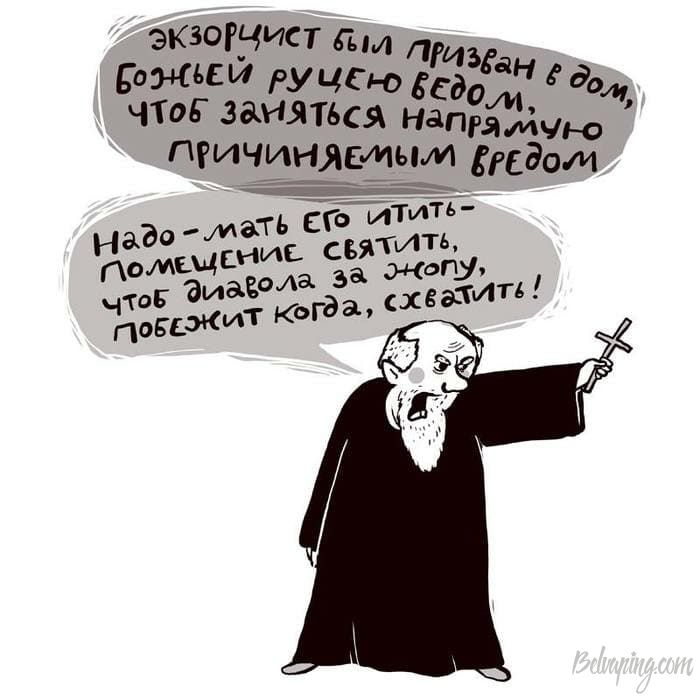 экзорцист был призван в дом,
божьей руцею ведом,
чтоб заняться напрямую
причиняемым вредом
Надо - мать его итить -
помещение святить,
чтоб диавола за жопу,
побежит когда, схватить!
Belvaping.com